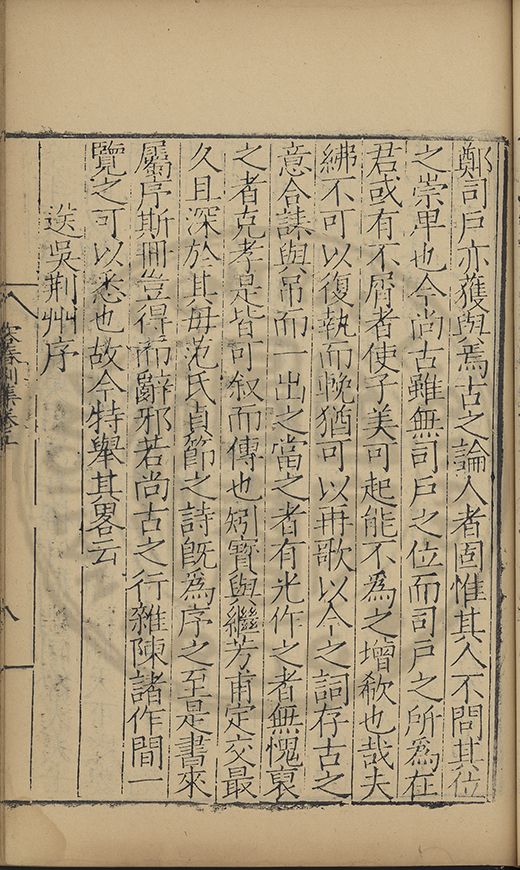 鄭司戶亦獲與焉古之論人者固惟其人不問其位
之崇卑也今尚古雖無司戶之位而司戶之所為在
君或有不屑者使子美可起能不為之增欷也哉夫
紼不可以復執而輓猶可以再歌以今之詞存古之
意合誄與吊而一出之當之者有光作之者無愧裒
之者克孝是皆可叙而傳也矧寶與繼芳甫定交最
久且深於其母范氏貞節之詩旣為序之至是書來
屬序斯冊豈得而辭邪若尚古之行雜陳諸作間一
覽之可以悉也故今特舉其畧云
送吳荆州序
容春別集卷五
八